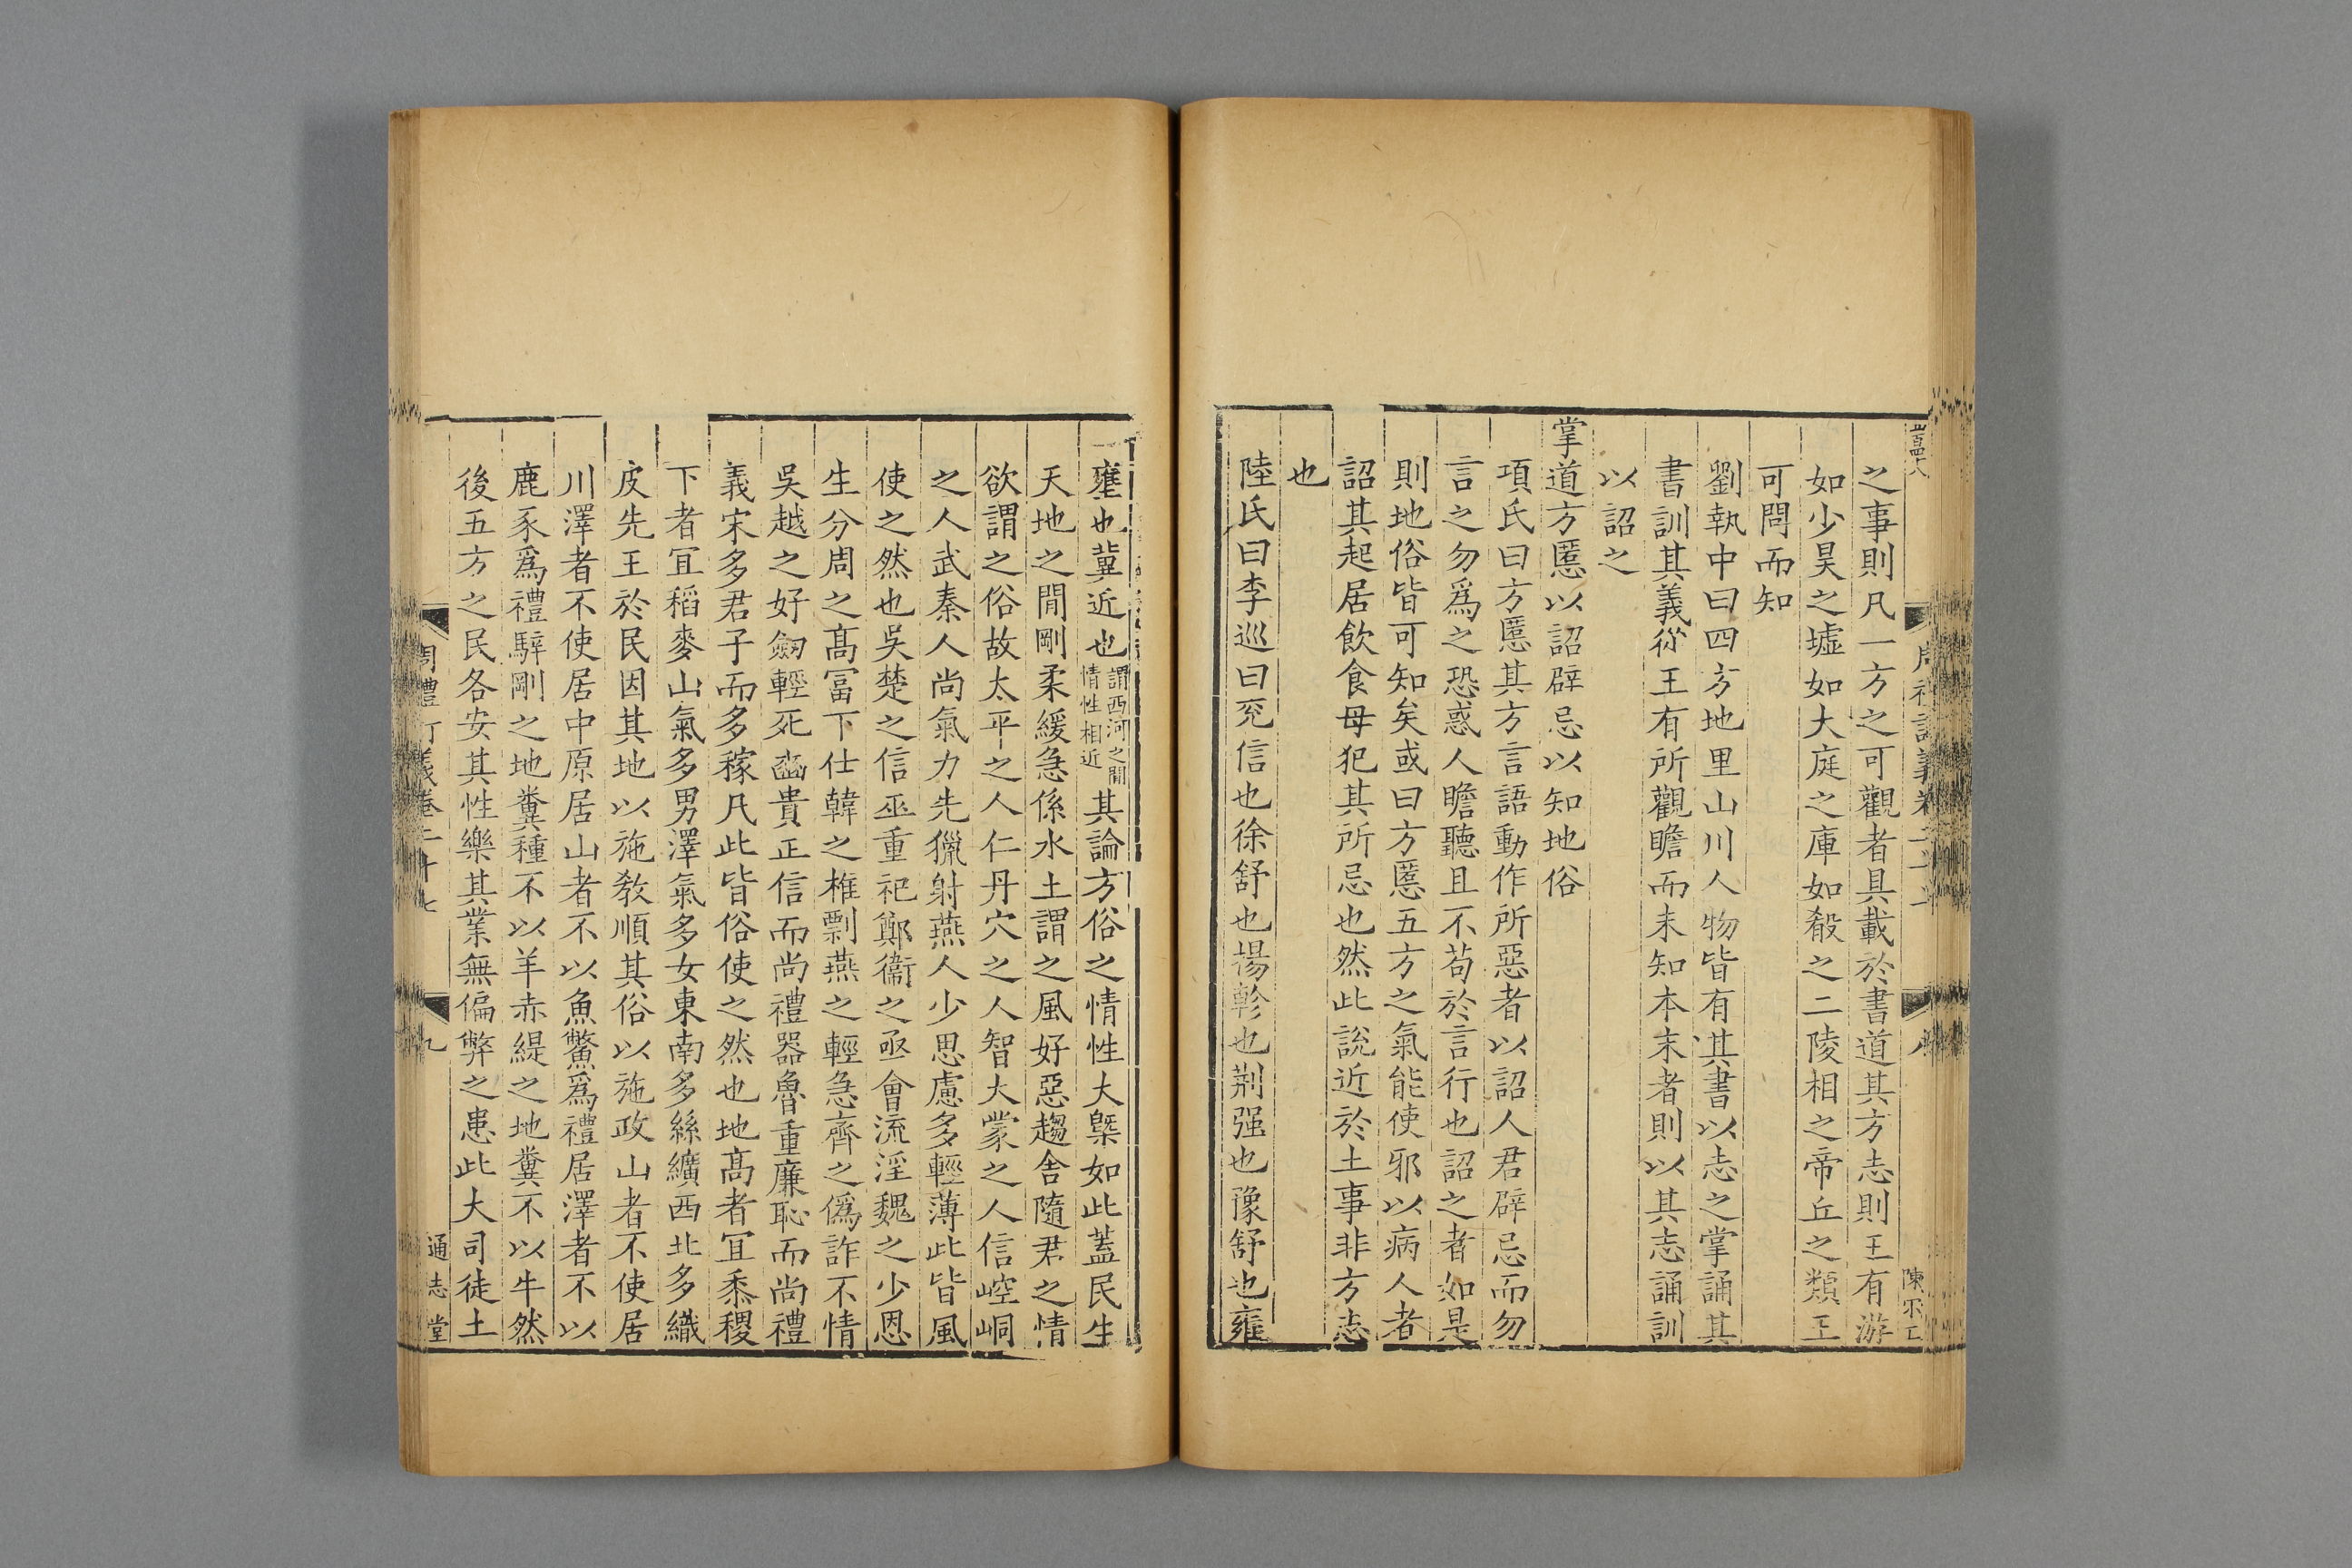 之事則凡一方之可觀者具載於書道其方志則王有游
如少昊之墟如大庭之庫如殽之二陵相之帝丘之類王
可問而知
劉執中曰四方地里山川人物皆有其書以志之掌誦其
書訓其義從王有所觀瞻而未知本末者則以其志誦訓
以詔之
掌道方慝以詔辟忌以知地俗
項氏曰方慝其方言語動作所惡者以詔人君辟忌而勿
言之勿爲之恐惑人瞻聽且不苟於言行也詔之者如是
則地俗皆可知矣或曰方慝五方之氣能使邪以病人者
詔其起居飲食母犯其所忌也然此說近於土事非方志
也
陸氏曰李巡曰兖信也徐舒也揚軫也荆强也豫舒也雍
壅也冀近也謂西河之間情性相近其論方俗之情性大槩如此蓋民生
天地之間剛柔緩急係水土謂之風好惡趨舍隨君之情
欲謂之俗故太平之人仁丹穴之人智大蒙之人信崆峒
之人武秦人尚氣力先獵射燕人少思慮多輕薄此皆風
使之然也吳楚之信巫重祀鄭衞之亟會流淫魏之少恩
生分周之髙富下仕韓之椎剽燕之輕急齊之僞詐不情
吳越之好劒輕死豳貴正信而尚禮器魯重廉恥而尚禮
義宋多君子而多稼凡此皆俗使之然也地髙者宜黍稷
下者宜稻麥山氣多男澤氣多女東南多絲纊西北多織
皮先王於民因其地以施敎順其俗以施政山者不使居
川澤者不使居中原居山者不以魚鱉爲禮居澤者不以
鹿豕爲禮騂剛之地糞種不以羊赤緹之地糞不以牛然
後五方之民各安其性樂其業無偏弊之患此大司徒土
周禮訂義卷二十七
九
通志堂